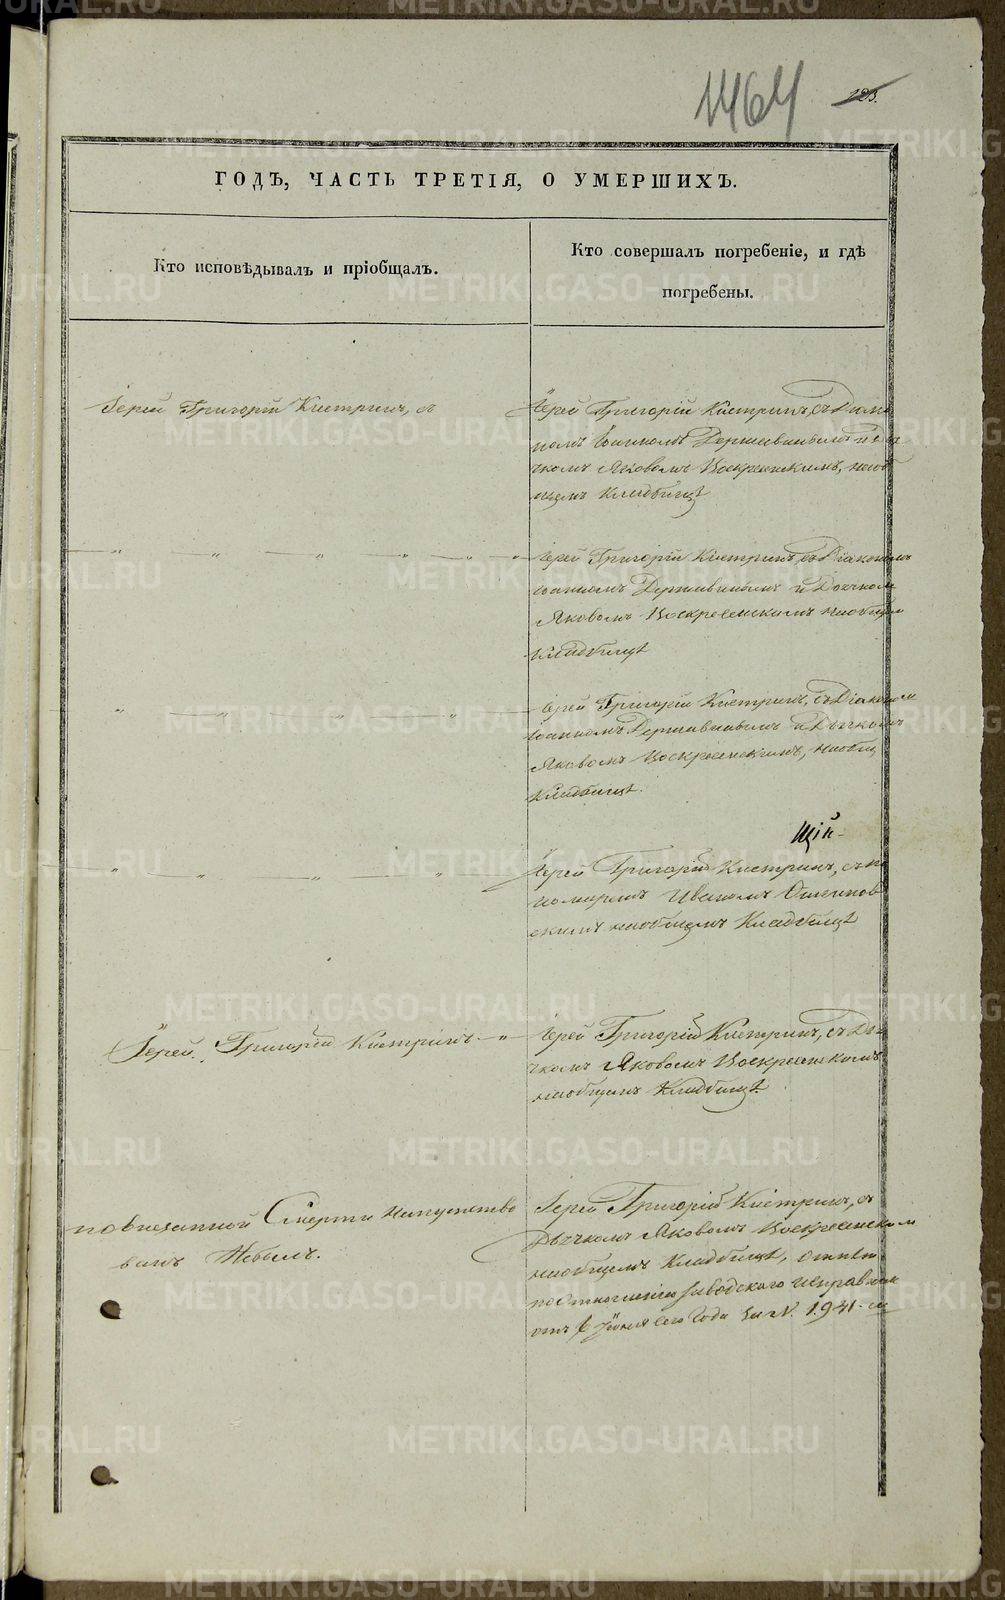 1464
123.
ГОДЪ, ЧАСТЬ ТРЕТІЯ, О УМЕРШИХЪ.
Кто исповѣдывалъ и пріобщалъ.
Кто совершалъ погребеніе, и гдѣ
погребены.
Іерей Григорій Кистринъ, съ
Іерей Григорій Кистринъ, съ Діако
номъ Іоанномъ Державинымъ и Дьи
чкомъ Яковомъ Воскресенскимъ, наоб
щемъ Кладбищѣ
Іерей Григорій Кистринъ, съ Діакономъ
Іоанномъ Державинымъ и Дьячком
Яковомъ Воскресенскимъ наобщем
Кладбищѣ
Іерей Григорій Кистринъ, съ Діаконом
Іоанномъ Державинымъ и Дьячкомъ
Яковомъ Воскресенскимъ, наобщ
Кладбищѣ.
щій
Іерей Григорій Кистринъ, съ по
номаремъ Иваномъ
скимъ наобщемъ Кладбищѣ
Іерей Григорій Кистринъ
Іерей Григорій Кистринъ, съ Дья
чкомъ Яковомъ Воскресенскимъ
наобщемъ Кладбищѣ.
повнезапной Смерти напутство
ванъ Небылъ.
Іерей Григорій Кистринъ, съ
Дьячкомъ Яковомъ Воскресенским
наобщемъ Кладбищѣ, отпѣтъ
поотношенію Заводскаго исправника
отъ Іюня сего Года за N. 1941.
METRIKI.GASO-URAL.RU